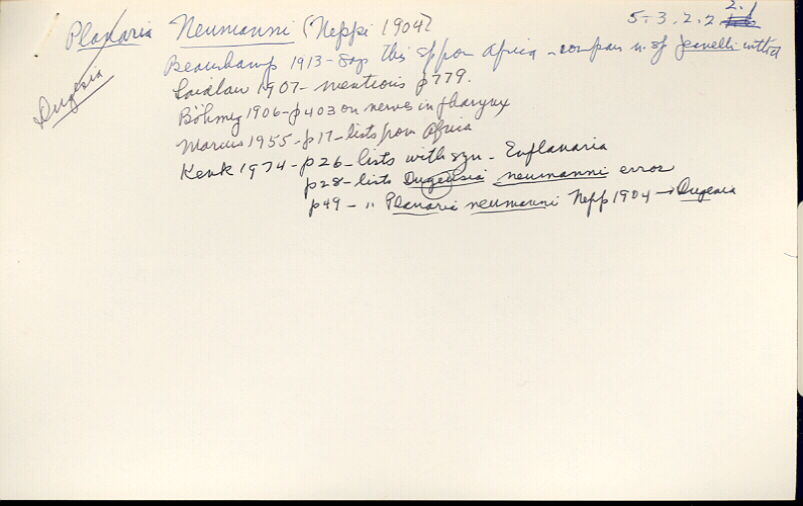 Planaria Neumanni (Neppi 1904) 5.3.2.2 2.1
Dugesia
Beauchamp 1913 - says this sp from Africa - compares n. sp jeanelli with it
Laidlaw 1907 - mentions p779.
Böhmig 1906 - p403 on nerves in pharynx
Marcus 1955 - p17 - lists from Africa
Kenk 1974 - p26 - lists with syn - Euplanaria
p28 - lists Dugensia neumanni error
p49 - " Planaria neumanni Nepp 1904 → Dugesia